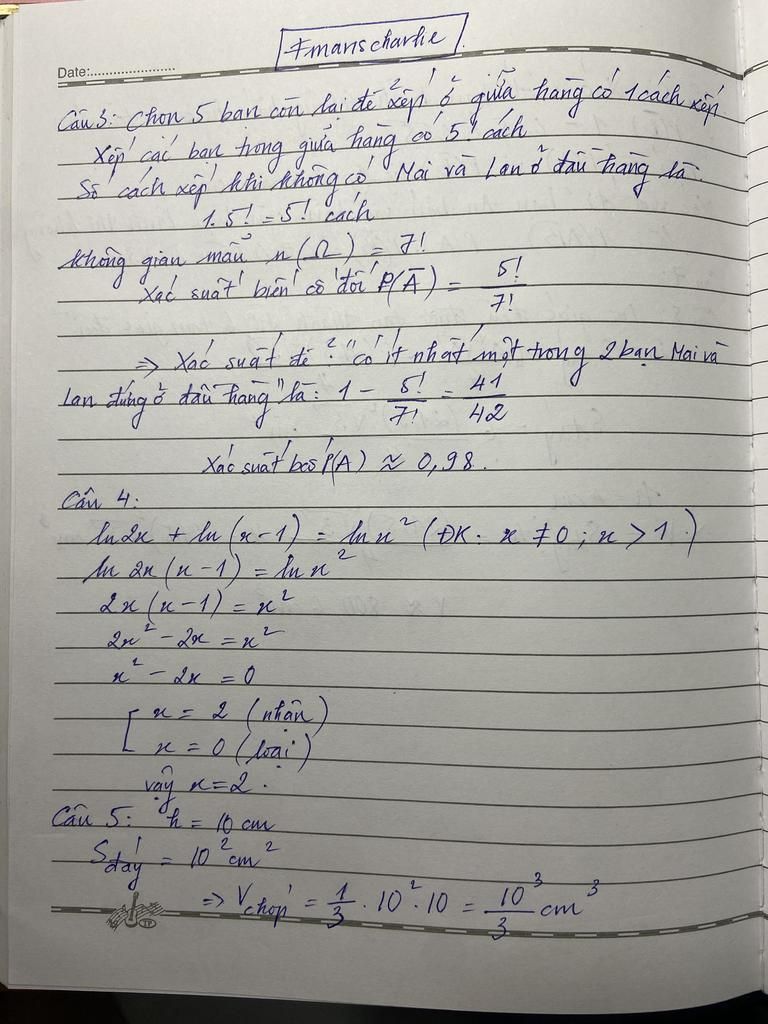 Fmanscharlie
Date:
Câu 3: Chọn 5 bạn còn lại để xếp ở giữa hàng có 1 cách xếp
Xếp các bạn trong giữa hàng có 5! cách
Số cách xếp khi không có Mai và Lan ở đầu hàng là
1.5! = 5! cách
không gian mẫu n(Ω) = 7!
Xác suất biến cố đối P(Ā) = 5!/7!
⇒ Xác suất để: "có ít nhất một trong 2 bạn Mai và
Lan đứng ở đầu hàng" là: 1 - 5!/7! = 41/42
Xác suất P(A) ≈ 0,98.
Câu 4:
ln2x + ln(x-1) = lnx² (ĐK: x ≠ 0; x > 1)
ln 2x(x-1) = lnx²
2x(x-1) = x²
2x² - 2x = x²
x² - 2x = 0
[ x = 2 (nhận)
x = 0 (loại)
vậy x=2.
Câu 5: h = 10 cm
S đáy = 10² cm²
⇒ V chóp = 1/3 . 10² . 10 = 10³/3 cm³
TP